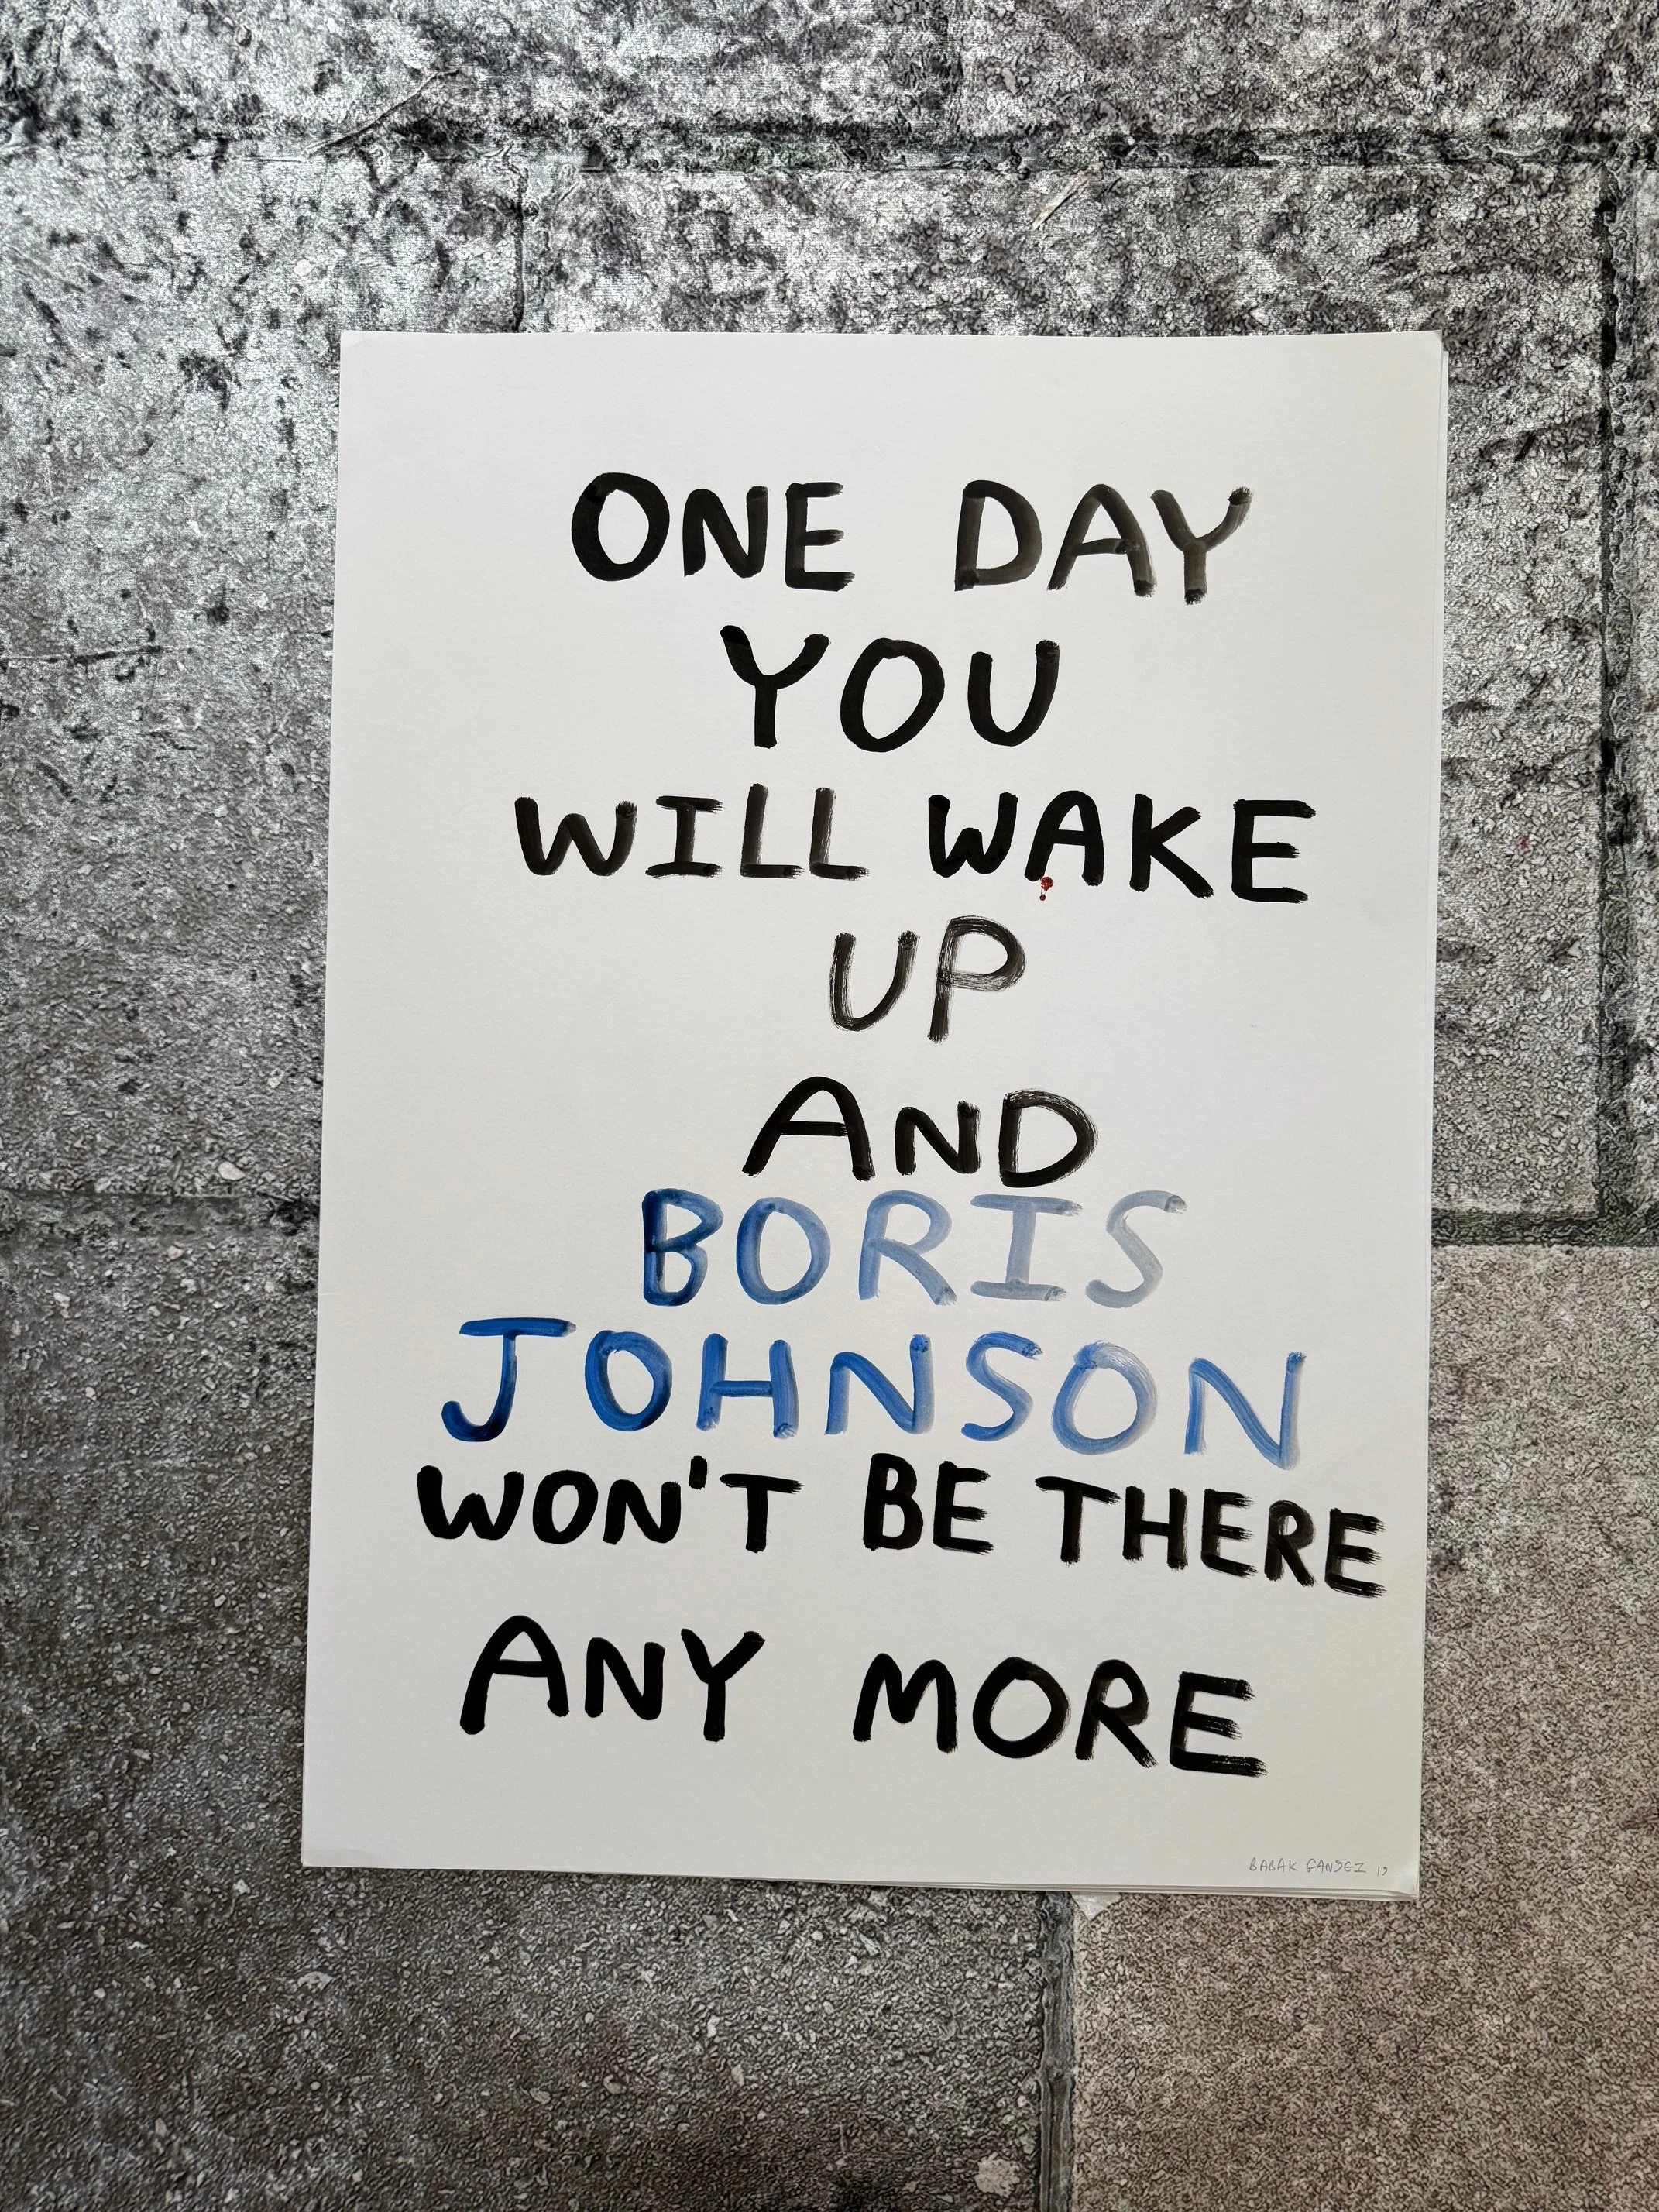 ONE DAY
YOU
WILL WAKE
UP
AND
BORIS
JOHNSON
WON'T BE THERE
ANY MORE
BABAK GANJEI 19